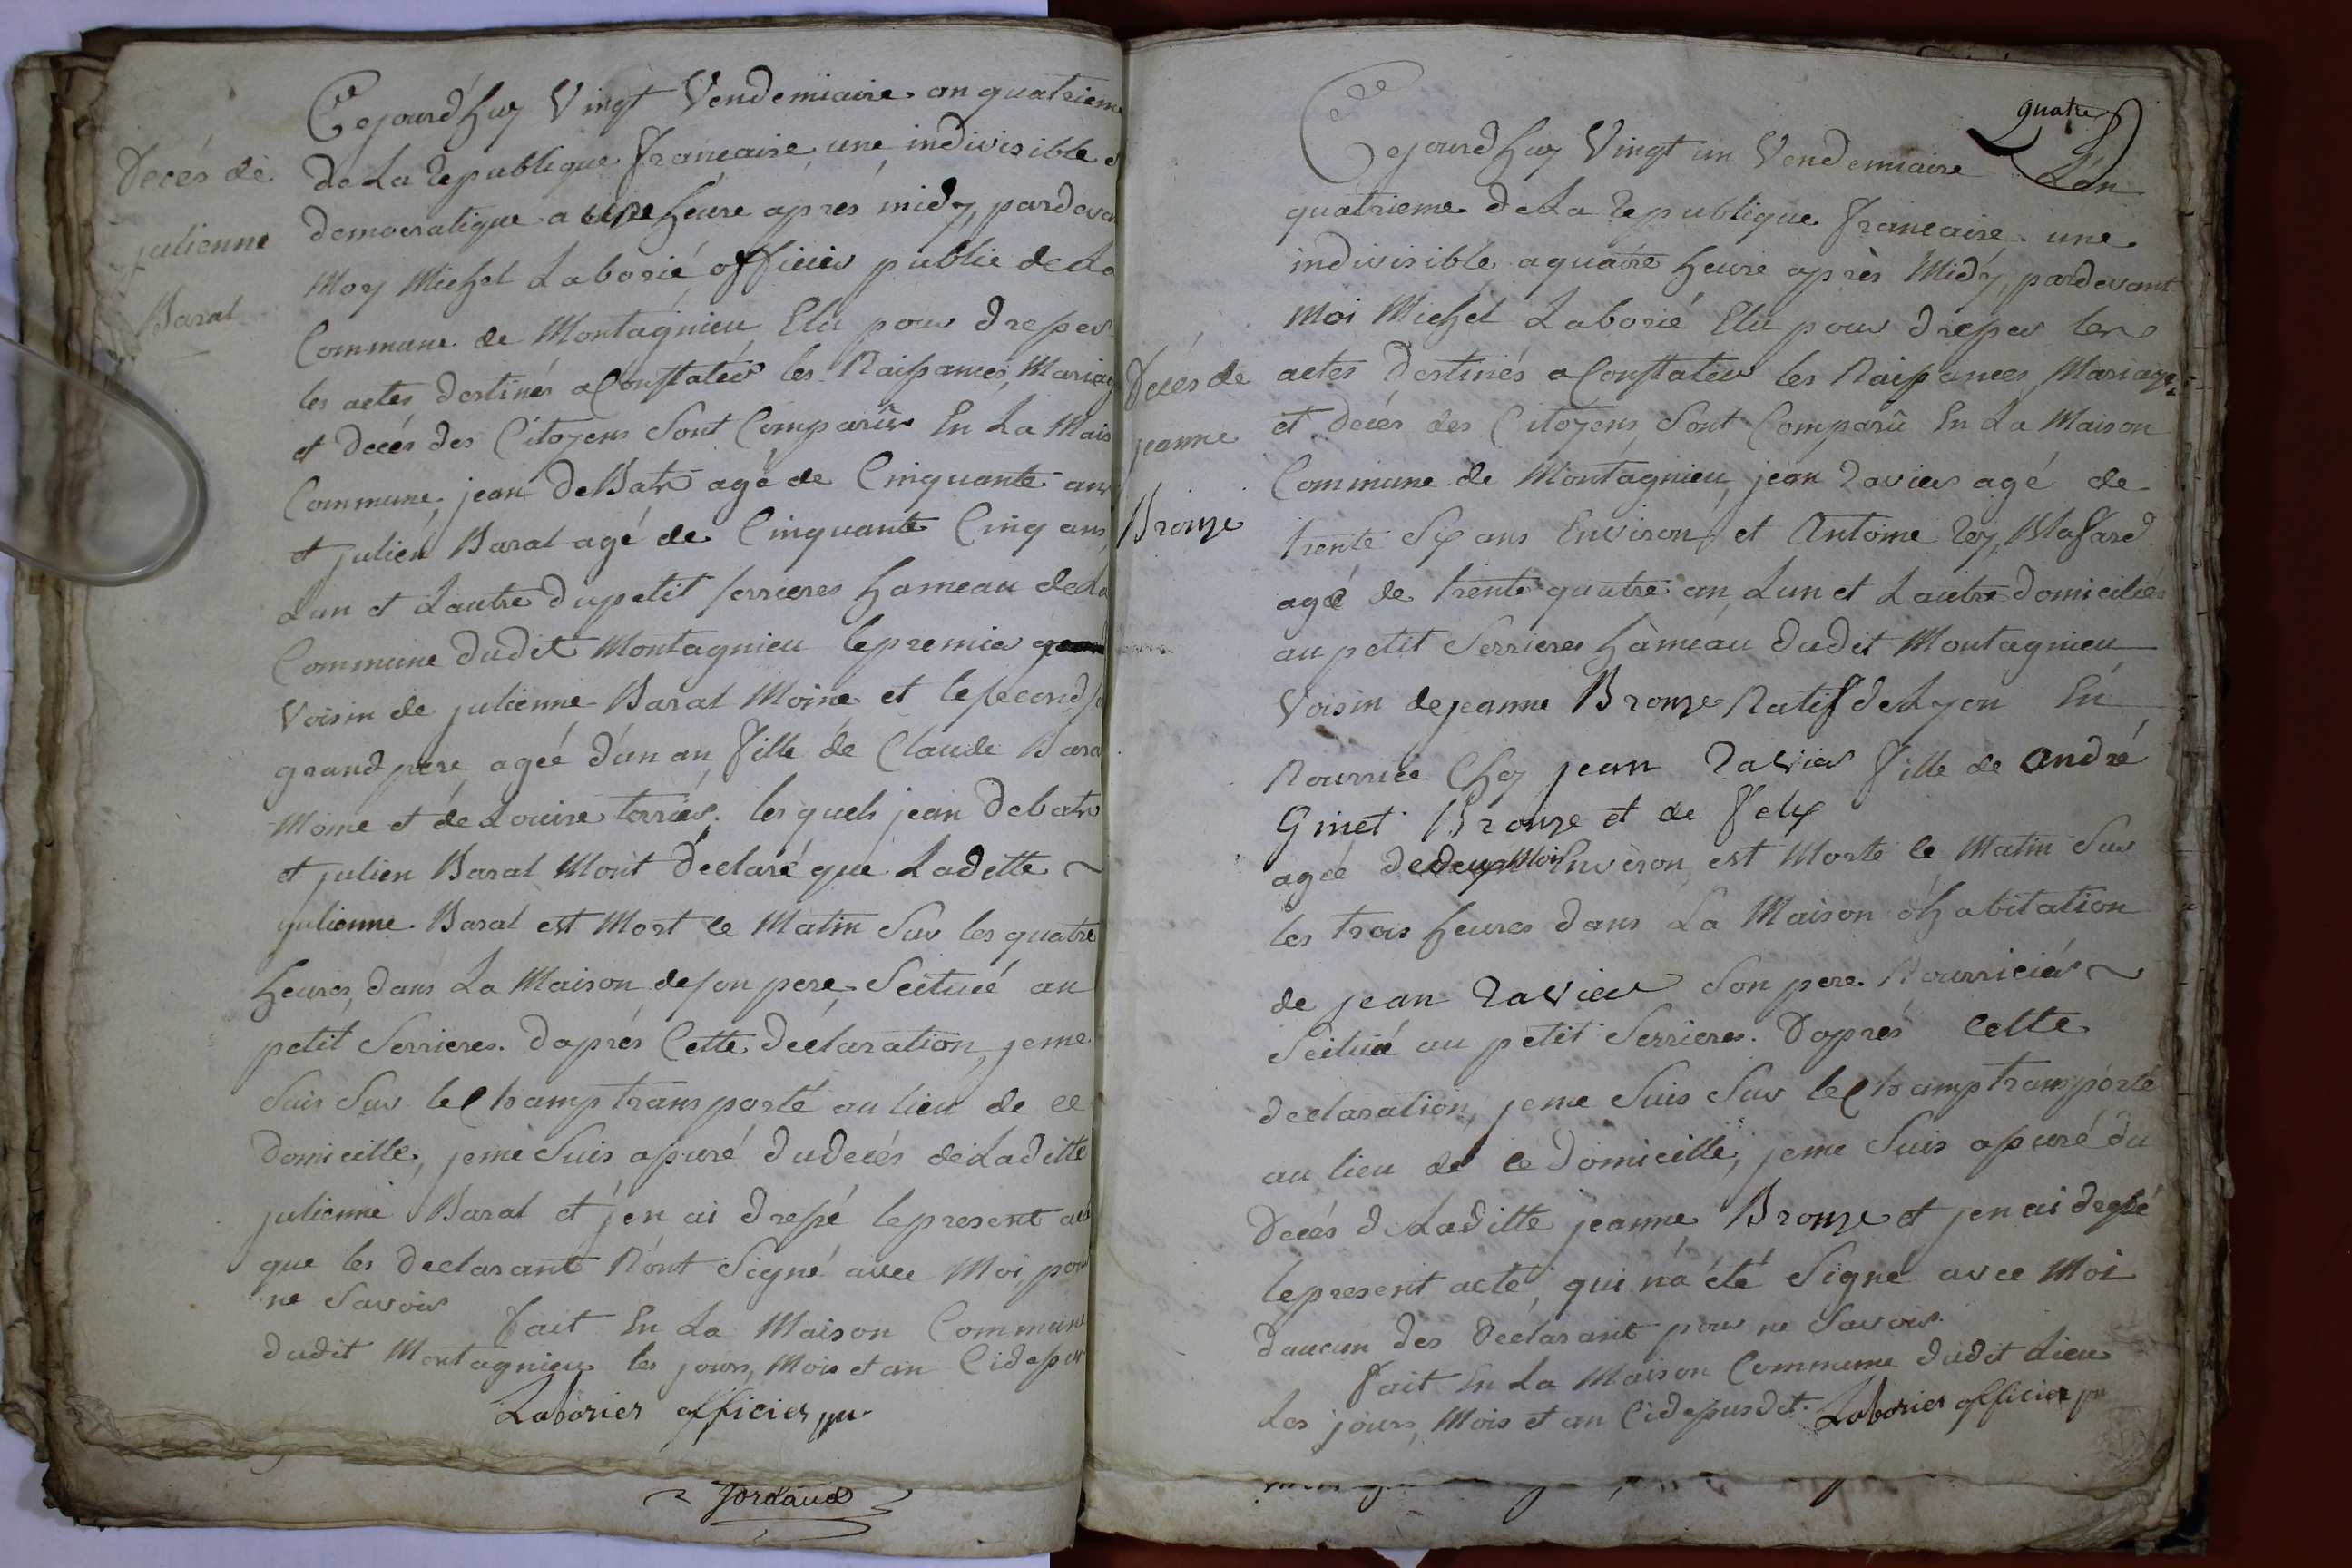 Decés de
julienne
Baral
Cejourd'huy Vingt Vendemiaire an quatrieme
de La Republique francaise une indivisible et
democratique a une heure après midy, pardevan
Moy Michel Laborié officier public de La
Commune de Montagnieu Elu pour dresser
les actes destinés a Constater les Naissances, Mariag
et decés des Citoyens sont Comparûs En La Mais
Commune, jean debatr agé de Cinquante ans
et julien Baral agé de Cinquante Cinq ans,
Lun et Lautre du petit serrieres hameau de La
Commune dudit Montagnieu le premier
Voisin de julienne Baral Moine et le second
grand pere agée d'un an fille de Claude Bara
Moine et de Louise terrier, lesquels jean debatr
et julien Baral Mont déclaré que Laditte
julienne Baral est Mort ce Matin Sur les quatre
heures, dans La Maison de son pere, Scituée au
petit Serrieres. d'après Cette déclaration, jeme
Suis Sur le Champ transporté au lieu de ce
domicille, jeme Suis assuré du decés de Laditte
julienne Baral et j'en ai dressé le present acte
que les declarant N'ont Signé avec Moi pour
ne Savoir
fait En La Maison Commune
dudit Montagnieu les jours, Mois et an Cidessus
Laborier officier pu.
Jordaud
quatre
Cejourd'huy Vingt un Vendemiaire L'an
quatrieme de La Republique francaise une
indivisible a quatre heure après Midy, pardevant
Moi Michel Laborié Elu pour dresser les
actes destinés a Constater les Naissances, Mariages
et decés des Citoyens, Sont Comparû En La Maison
Commune de Montagnieu, jean Ravier agé de
trente Six ans Environ, et Antoine Rey, Blafard
agé de trente quatre an, Lun et Lautre domiciliés
au petit Serrieres hameau dudit Montagnieu
Voisin de jeanne Bronze Natif de Lyon En
Decés de
jeanne
Bronze
Nourrice Chez jean Ravier fille de andré
Ginet Bronze et de felix
agée de deux Mois Environ, est Morte ce Matin Sur
les trois heures dans La Maison d'habitation
de jean Ravier Son pere Nourricier
Scitué au petit Serrieres. D'après Cette
declaration, jeme Suis Sur le Champ transporté
au lieu de ce domicille, jeme Suis assuré du
Decés de Laditte jeanne Bronze et j'en ai dressé
le present acte, qui n'a été Signé avec Moi
d'aucun des Déclarant pour ne Savoir.
fait En La Maison Commune dudit Lieu
Les jours, Mois et an Cidessusdit. Laborier officier pu